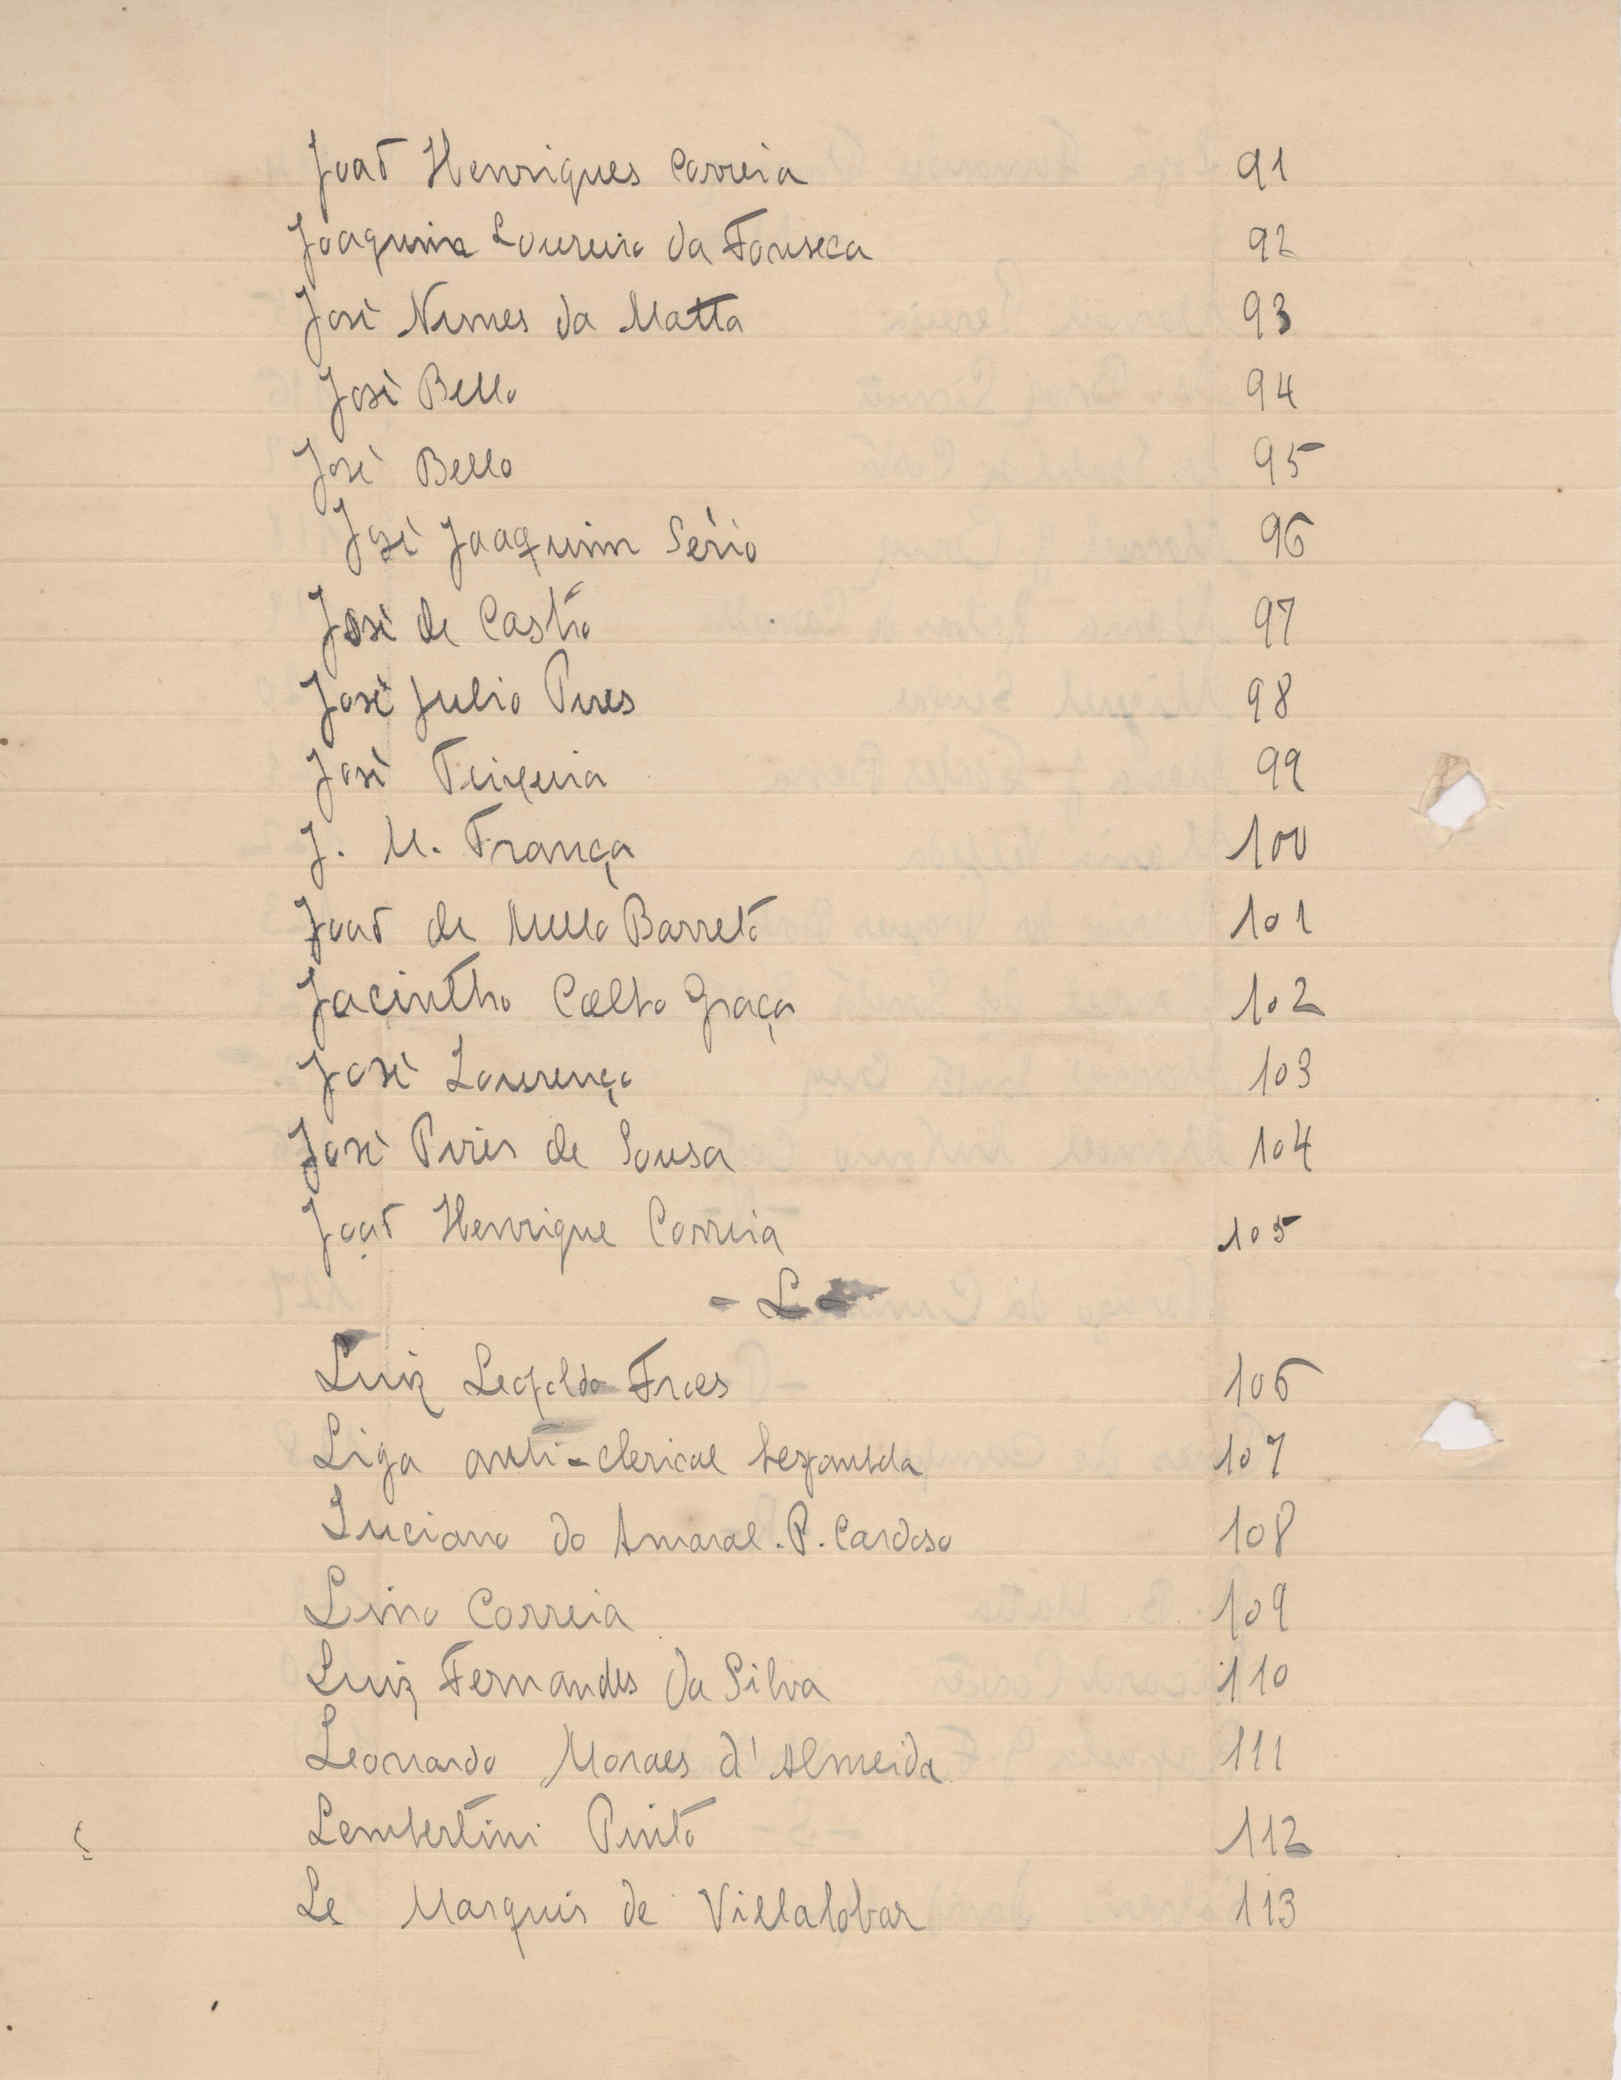 João Henriques Correia 91
Joaquim Loureiro da Fonseca 92
José Nunes da Matta 93
José Bello 94
José Bello 95
José Joaquim Sério 96
José de Castro 97
José Julio Pires 98
José Teixeira 99
J. M. França 100
João de Mello Barreto 101
Jacintho Coelho Graça 102
José Lourenço 103
José Pires de Sousa 104
João Henrique Correia 105
- L -
Luiz Leopoldo Froes 106
Liga anti-clerical 107
Luciano do Amaral. P. Cardoso 108
Lino Correia 109
Luiz Fernandes da Silva 110
Leonardo Moraes d'Almeida 111
Lambertini Pinto 112
Le Marquis de Villalobar 113